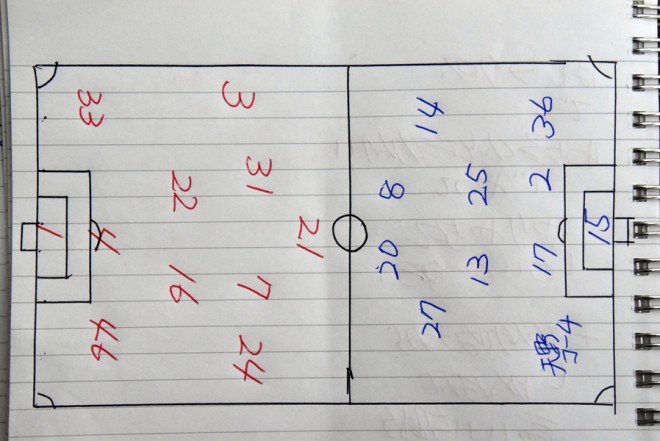 33
3
14
36
31
22
8
25
2
21
1
4
15
16
7
20
13
17
46
24
27
天野
コーチ